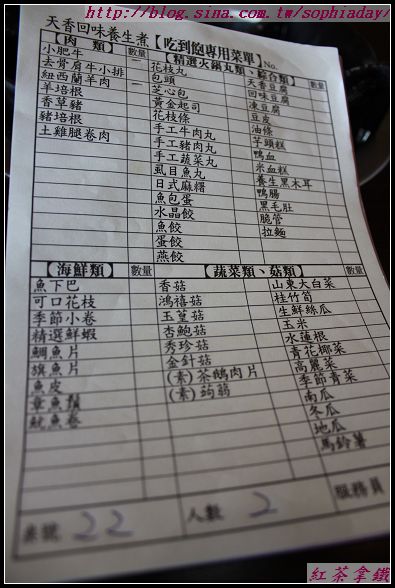 http://blog.sina.com.tw/sophiaday/
天香回味養生煮【吃到飽專用菜單】No.
【肉 類】 數量
小肥牛
去骨肩牛小排
紐西蘭羊肉
羊培根
香草豬
豬培根
土雞腿卷肉
【精選火鍋丸類、綜合類】 數量
花枝丸
包頭
芝心包
黃金起司
花枝條
手工牛肉丸
手工豬肉丸
手工蔬菜丸
虱目魚丸
日式麻糬
魚包蛋
水晶餃
魚餃
蛋餃
燕餃
天香豆腐
回味豆腐
凍豆腐
豆皮
油條
芋頭糕
鴨血
米血糕
養生黑木耳
鴨腸
黑毛肚
脆管
拉麵
【海鮮類】 數量
魚下巴
可口花枝
季節小卷
精選鮮蝦
鯛魚片
旗魚片
魚皮
章魚鬚
魷魚卷
【蔬菜類、菇類】 數量
香菇
鴻禧菇
玉蕈菇
杏鮑菇
秀珍菇
金針菇
(素)茶鵝肉片
(素)蒟蒻
山東大白菜
桂竹筍
生鮮絲瓜
玉米
水蓮根
青花椰菜
高麗菜
季節青菜
南瓜
冬瓜
地瓜
馬鈴薯
桌號 22 人數 2 服務員
紅茶拿鐵